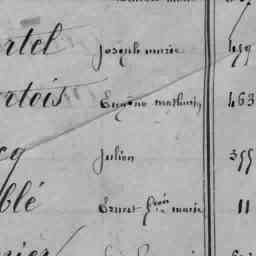 rtel Joseph marie 459
rtois Eugène mathurin 463
cq Julien 355
blé Ernest frois marie 11
nier